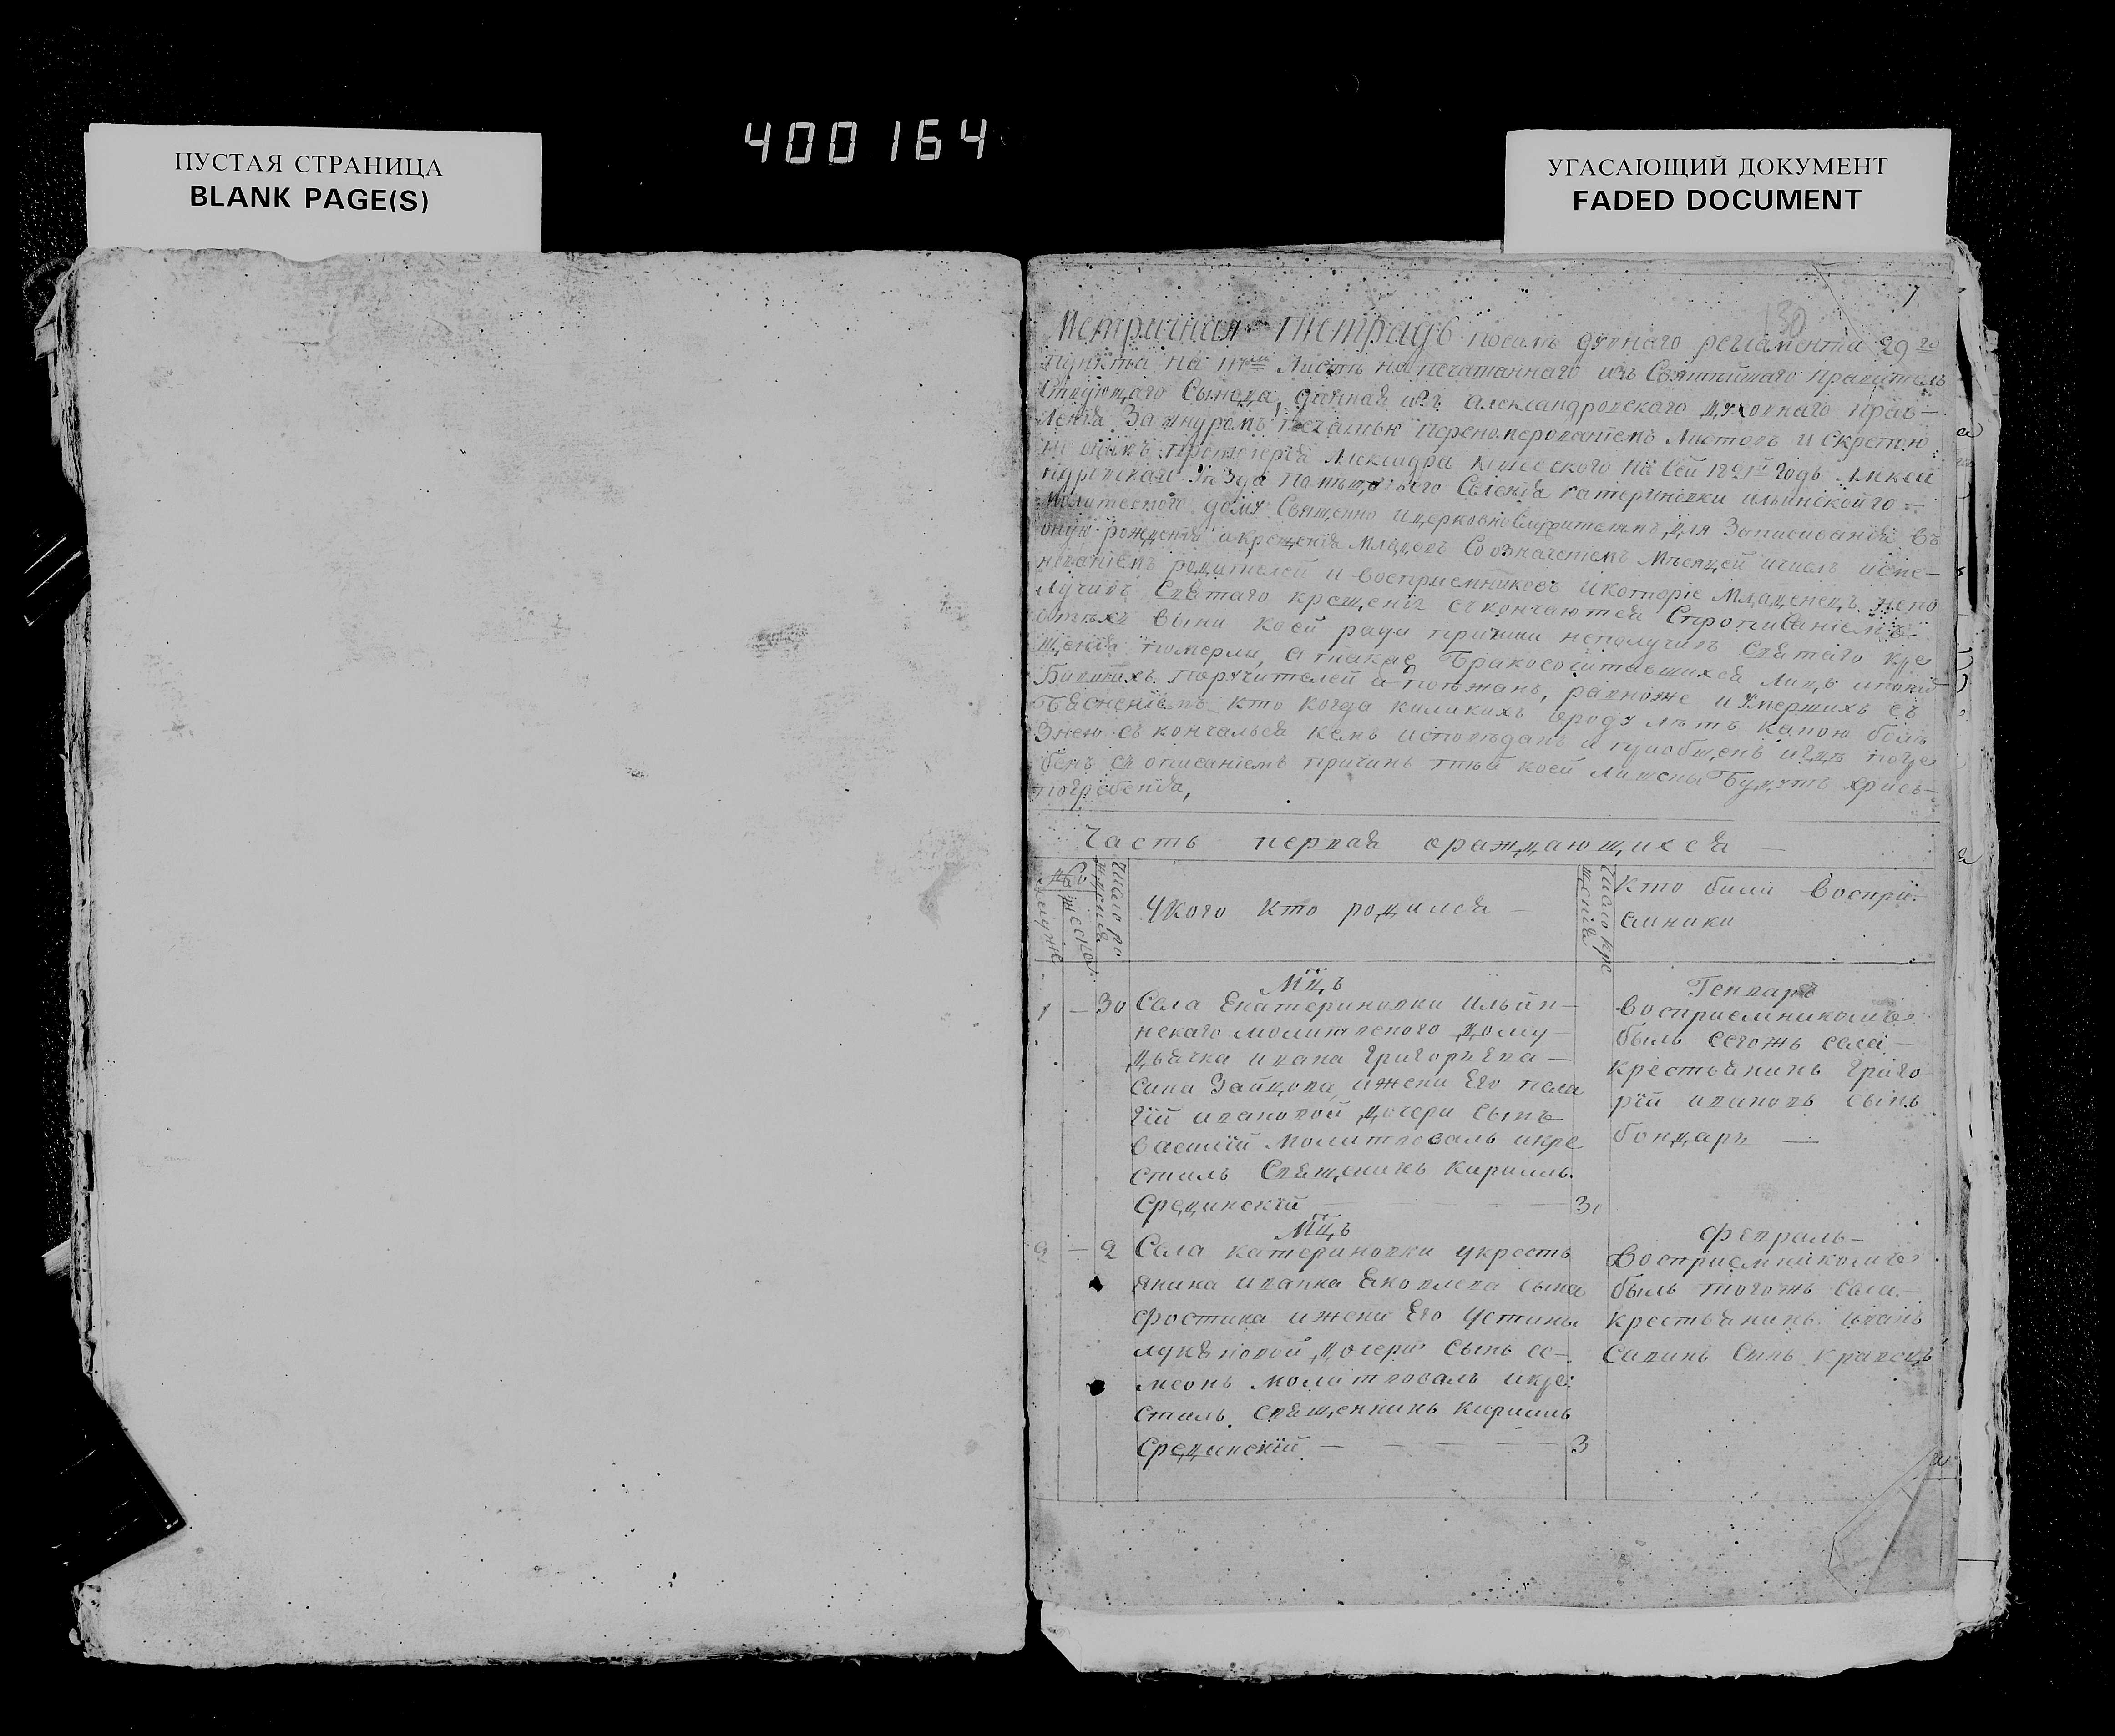 ПУСТАЯ СТРАНИЦА
BLANK PAGE(S)
400164
УГАСАЮЩИЙ ДОКУМЕНТ
FADED DOCUMENT
130
Метричная тетрадь посилѣ духнаго регламента 29го
пункта на Листѣ напечатаннаго изъ Святѣйшаго правитель
Ствующаго Сѵнода, данная изъ александровского духовнаго прав-
ленія За шнуромъ печатью переномерованіемъ Листовъ и Скрепою
Александра на Сей годъ
Уезда Селенія катериновки ильинской го-
Молитвеного дому Священно ицерковно Служителямъ для Записиванія въ
оную рожденія икрещенія Младенцовъ Со означеніемъ Мѣсяцей ичислъ
родителей и восприемниковъ икоторіе Младенецъ непо
лучивъ Святаго крещенія скончаются Спрописаніемъ
вини коей ради причини неполучивъ Святаго кре
щенія померли, а также Бракосочитавшихся Лицъ
Бившихъ поручителей поезжанъ, равноже иУмершихъ съ
ясненіемъ кто когда каликихъ ѿроду лѣтъ какою болѣ
Знею скончалься кемъ исповѣданъ и приобщенъ игдѣ погре
бенъ со описаніемъ причинъ коей Лишены Будутъ хрись-
погребенія,
Часть первая ѡраждающихся
Число рожденія
Укого кто родился
Число кре
щенія
Кто били воспри-
емники
Мцъ
Генварь
1 — 30 Села Екатериновки Ильин-
нскаго молитвеного дому
Дьячка ивана Григорьева
Сина Зайцова, ижени Его пела
гій ивановой дочери Сынъ
василій Молитвовалъ икре
стилъ Священикъ Кириллъ
Срединскій 31
восприемникомъ
былъ Сегожъ села
крестьянинъ Григо
рій ивановъ сынъ
бондарь
Мцъ
Февраль
2 — 2 Села катериновки укресть
янина ивана Яковлева сына
Фостика ижени Его Устины
лукяновой дочери Сынъ се-
меонъ молитвовалъ икре-
стилъ священникъ Кириллъ
Срединскій 3
Восприемникомъ
былъ тогожъ села
крестьянинъ иванъ
Савинъ Сынъ кравецъ